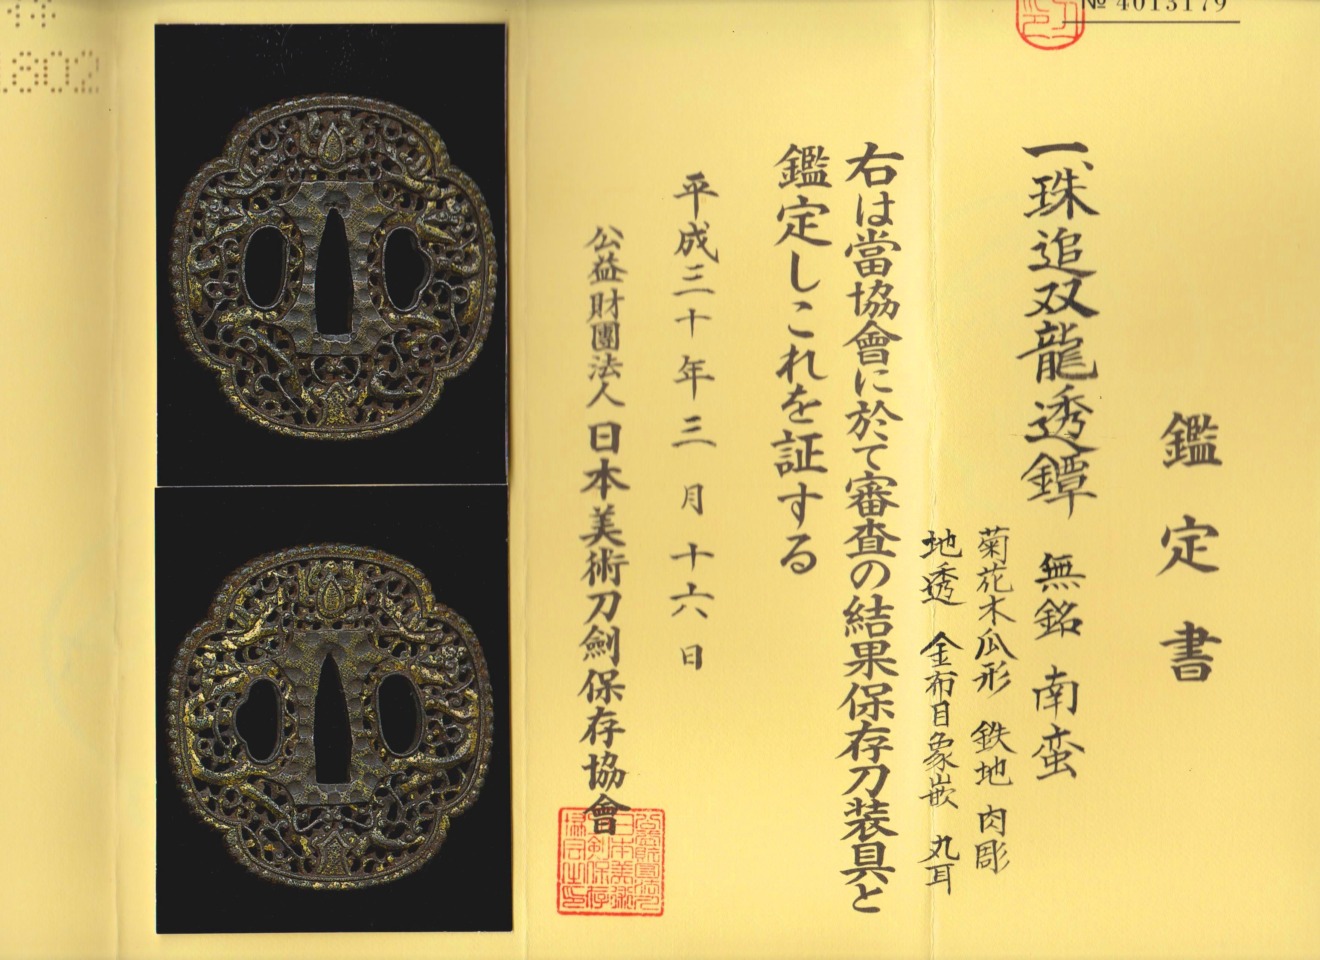 № 4013179
鑑定書
一、珠追双龍透鐔 無銘 南蛮
菊花木瓜形 鉄地 肉彫
地透 金布目象嵌 丸耳
右は當協會に於て審査の結果保存刀装具と
鑑定しこれを証する
平成三十年三月十六日
公益財團法人日本美術刀劍保存協會
1802